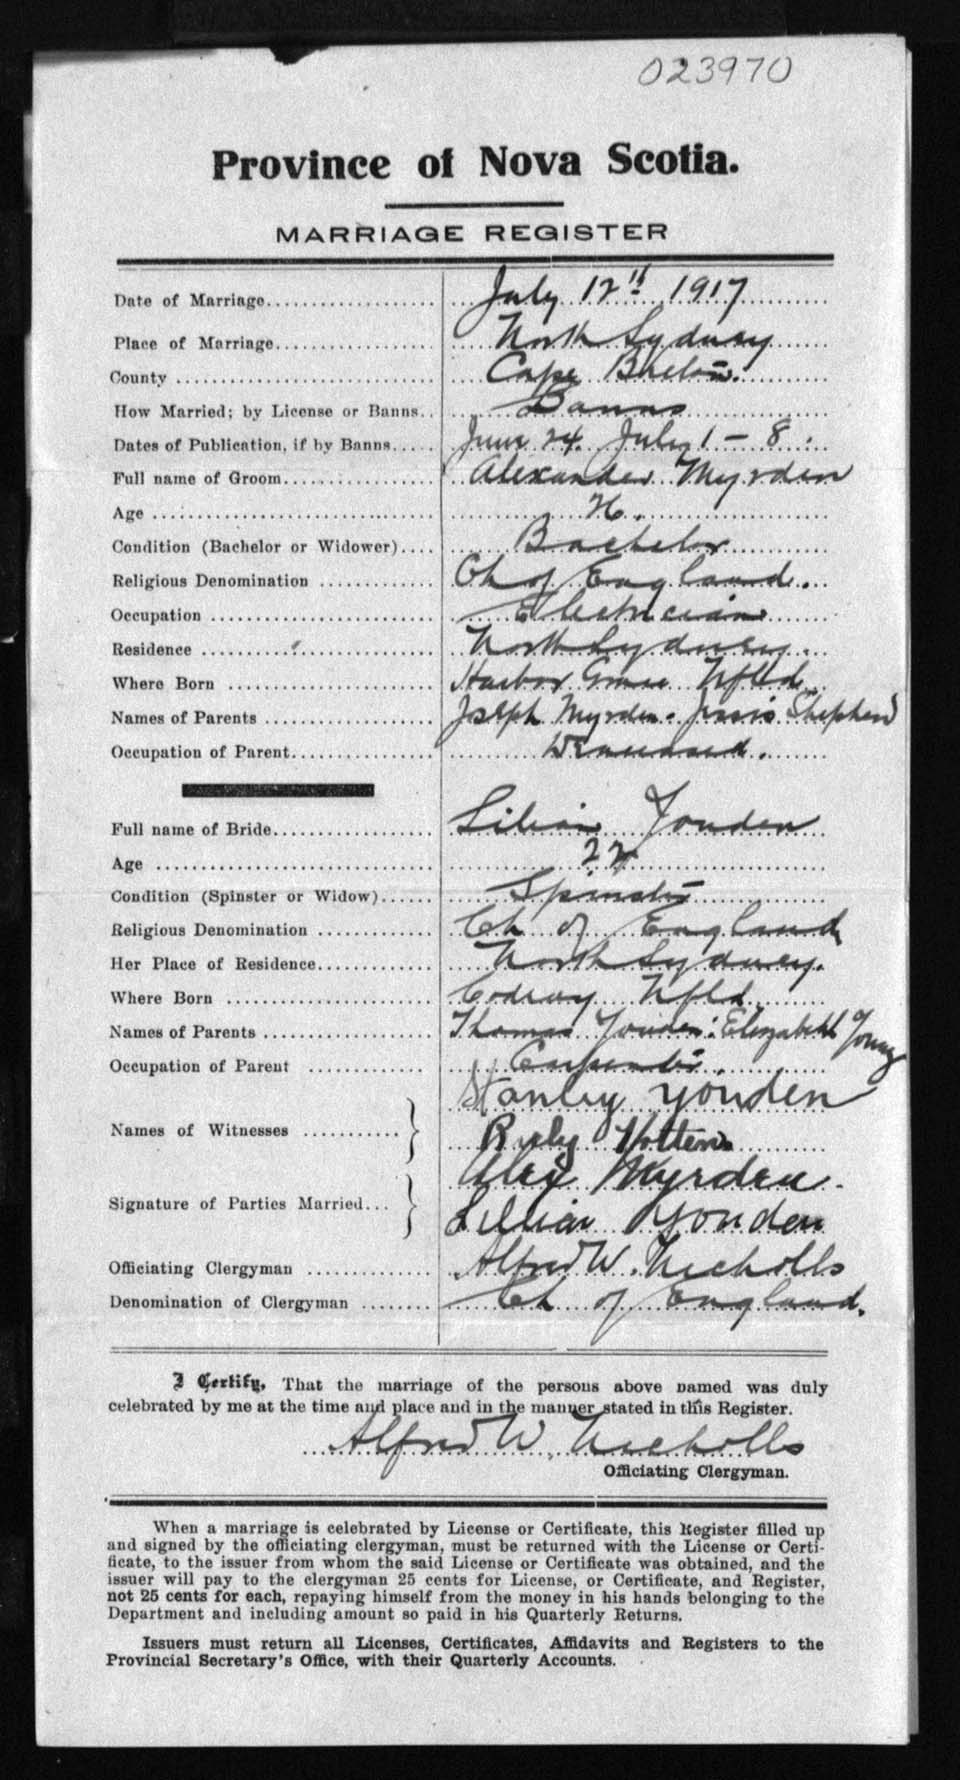 023970
Province of Nova Scotia.
MARRIAGE REGISTER
Date of Marriage July 12th 1917
Place of Marriage North Sydney
County Cape Breton.
How Married; by License or Banns Banns
Dates of Publication, if by Banns June 24. July 1 - 8.
Full name of Groom Alexander Myrden
Age
Condition (Bachelor or Widower) Bachelor
Religious Denomination Ch of England.
Occupation Electrician
Residence North Sydney.
Where Born Harbor Grace Nfld
Names of Parents Joseph Myrden. Shepherd
Occupation of Parent
Full name of Bride Lilian Youden
Age 22
Condition (Spinster or Widow) Spinster
Religious Denomination Ch of England
Her Place of Residence North Sydney.
Where Born Codroy Nfld
Names of Parents Thomas Youden: Elizabeth Young
Occupation of Parent Carpenter
Names of Witnesses Stanley Youden
Ruby
Signature of Parties Married Alex Myrden.
Lillian Youden
Officiating Clergyman Alfred W. Nicholls
Denomination of Clergyman Ch of England.
I Certify, That the marriage of the persons above named was duly
celebrated by me at the time and place and in the manner stated in this Register.
Alfred W. Nicholls
Officiating Clergyman.
When a marriage is celebrated by License or Certificate, this Register filled up
and signed by the officiating clergyman, must be returned with the License or Certi-
ficate, to the issuer from whom the said License or Certificate was obtained, and the
issuer will pay to the clergyman 25 cents for License, or Certificate, and Register,
not 25 cents for each, repaying himself from the money in his hands belonging to the
Department and including amount so paid in his Quarterly Returns.
Issuers must return all Licenses, Certificates, Affidavits and Registers to the
Provincial Secretary's Office, with their Quarterly Accounts.